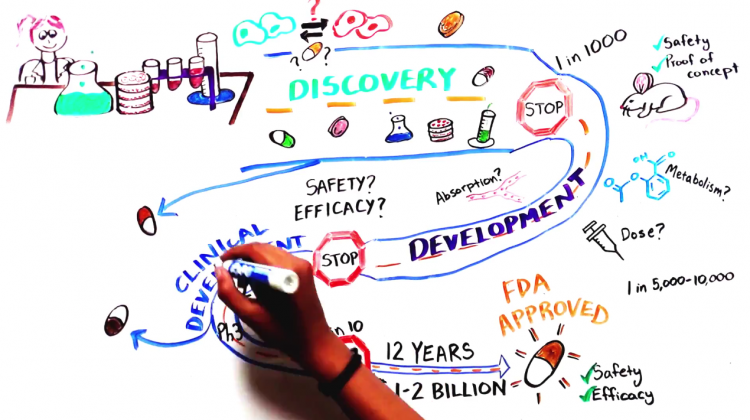 ?
? ?
DISCOVERY
1 in 1000
STOP
Safety
Proof of concept
SAFETY?
EFFICACY?
Absorption?
DEVELOPMENT
O
OH
O
O
Metabolism?
Dose?
1 in 5,000-10,000
CLINICAL
STOP
Ph3
in 10
12 YEARS
1-2 BILLION
FDA
APPROVED
Safety
Efficacy